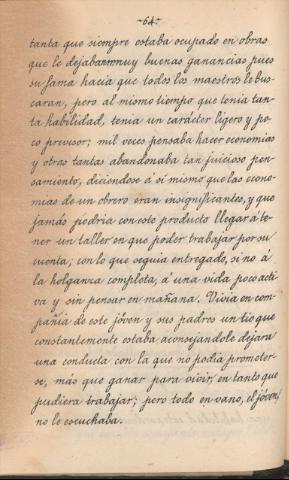 -64-
tanta que siempre estaba ocupado en obras
que le dejaban muy buenas ganancias pues
su fama hacia que todos los maestros le bus-
caran, pero al mismo tiempo que tenia tan-
ta habilidad, tenia un carácter ligero y po-
co previsor; mil veces pensaba hacer economias
y otras tantas abandonaba tan juicioso pen-
samiento, diciendose á si mismo que las econo-
mias de un obrero eran insignificantes, y que
jamás podria con este producto llegar á te-
ner un taller en que poder trabajar por su
cuenta; con lo que seguia entregado, si no á
la holganza completa, á una vida poco acti-
va y sin pensar en mañana. Vivia en com-
pañia de este jóven y sus padres un tio que
constantemente estaba aconsejandole dejara
una conducta con la que no podia prometer-
se, más que ganar para vivir en tanto que
pudiera trabajar; pero todo en vano, el jóven
no le escuchaba.